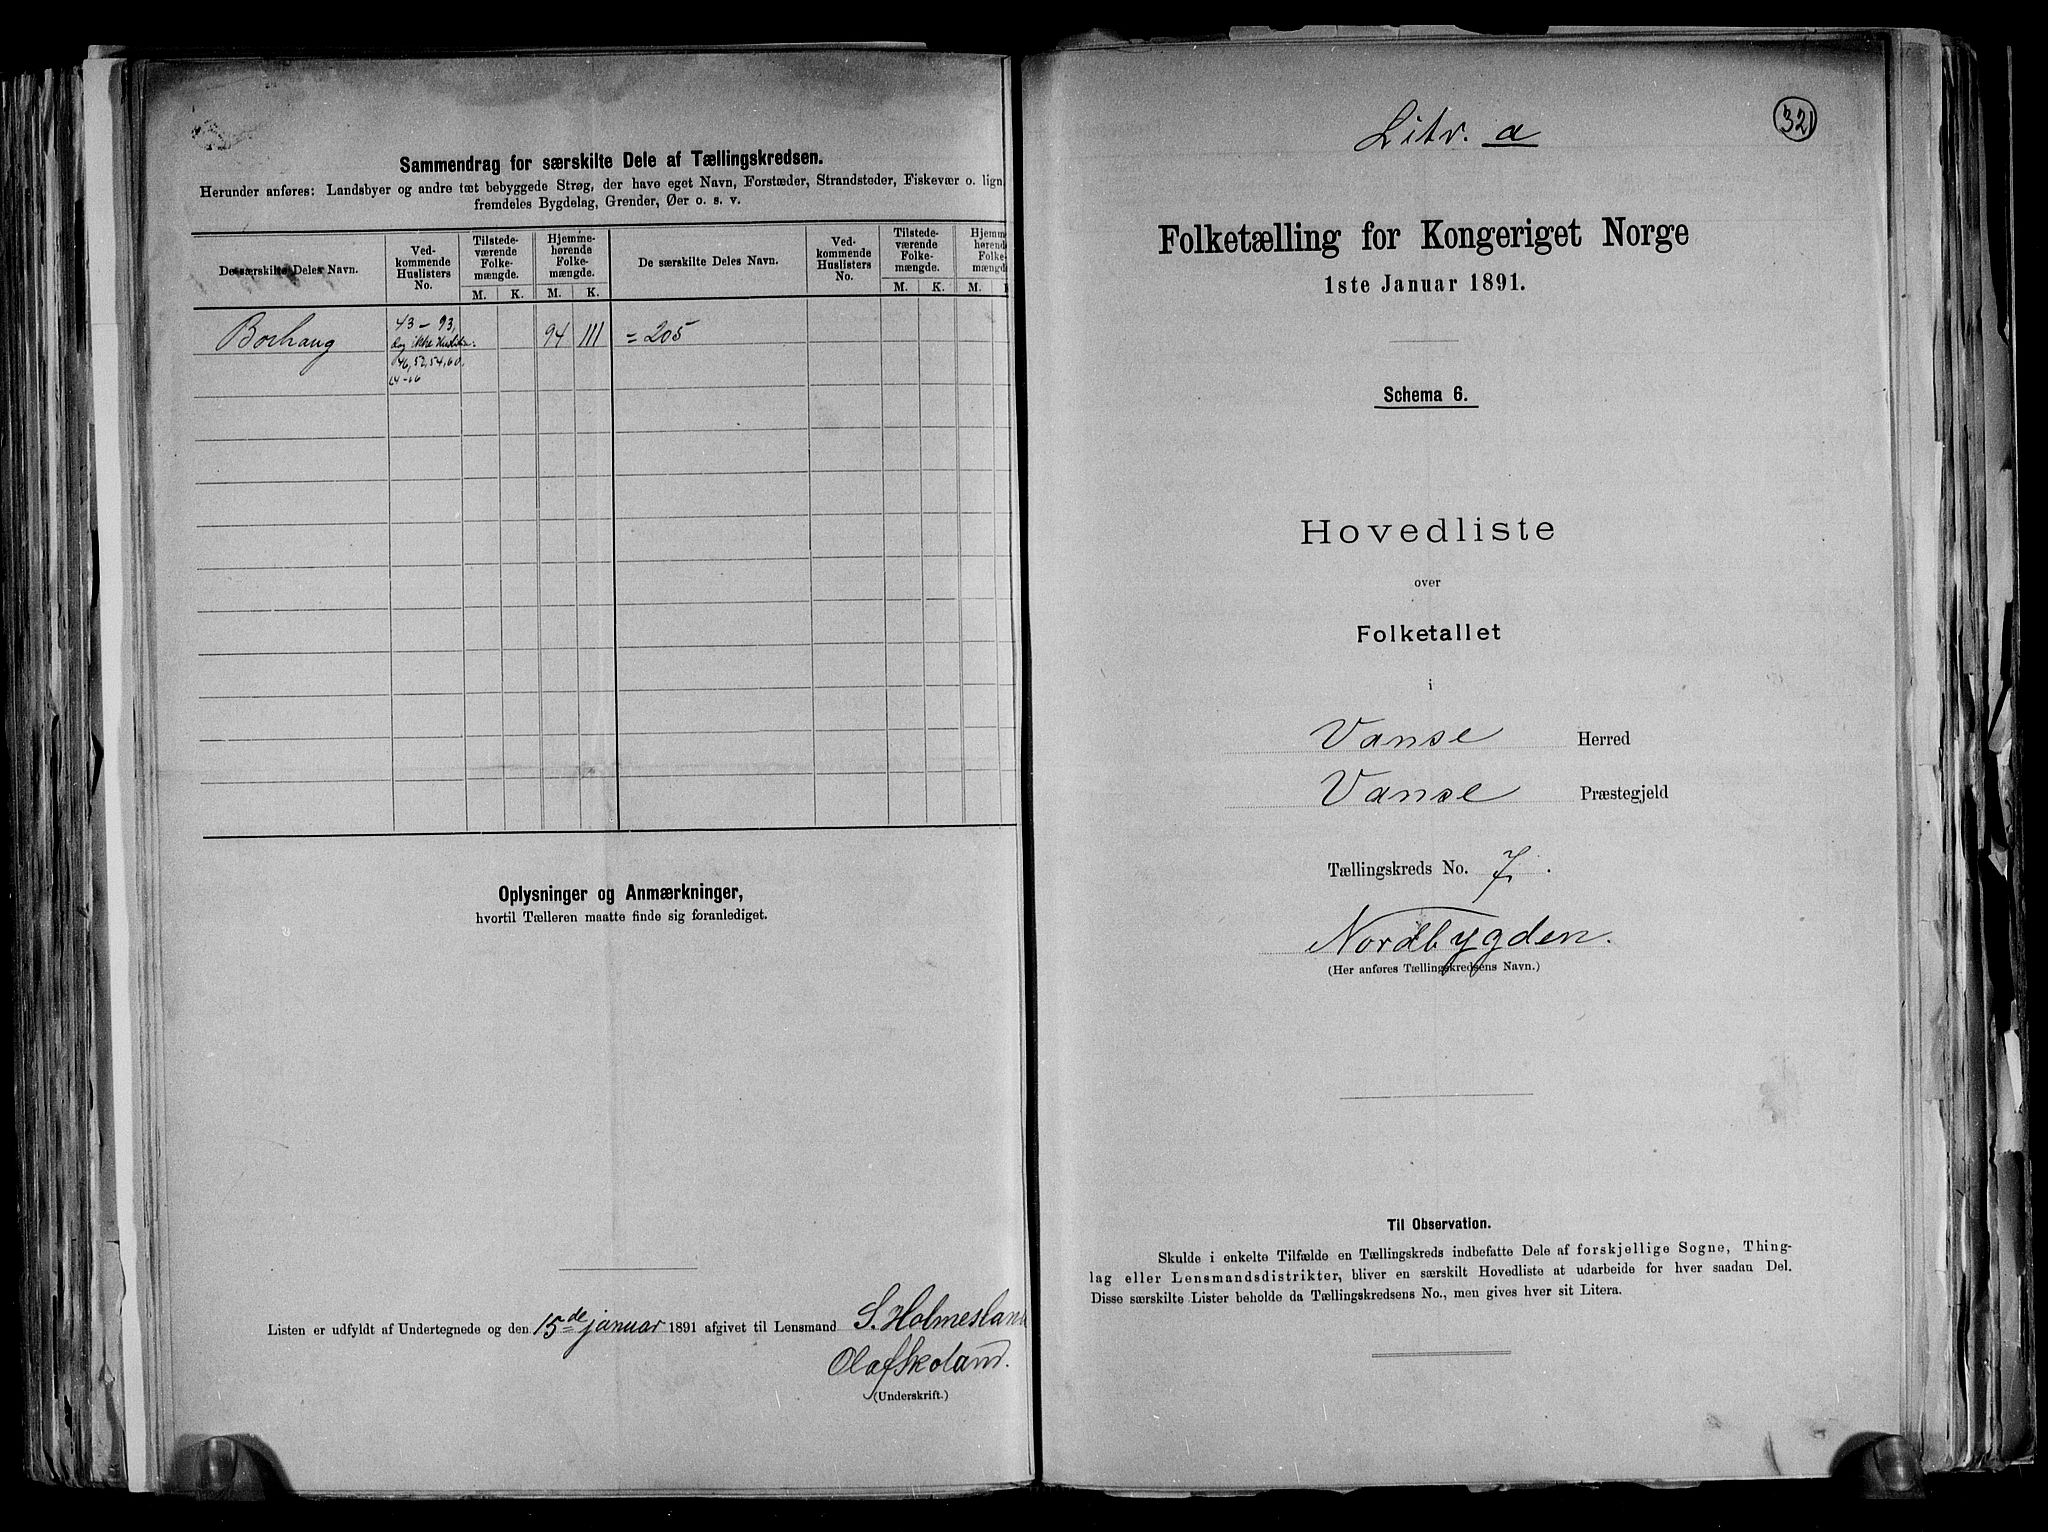 Sammendrag for særskilte Dele af Tællingskredsen.
Herunder anføres: Landsbyer og andre tæt bebyggede Strøg, der have eget Navn, Forstæder, Strandsteder, Fiskevær o. lign.
fremdeles Bygdelag, Grender, Øer o. s. v.
De særskilte Deles Navn.
Ved-
kommende
Huslisters
No.
Tilstede-
værende
Folke-
mængde.
M. K.
Hjemme-
hørende
Folke-
mængde.
M. K.
De særskilte Deles Navn.
Ved-
kommende
Huslisters
No.
Tilstede-
værende
Folke-
mængde.
M. K.
Hjemme-
hørende
Folke-
mængde
M.
Borhaug 43 - 93, 94 111 = 205
dog ikke
46, 52, 54, 60,
64-66
Oplysninger og Anmærkninger,
hvortil Tælleren maatte finde sig foranlediget.
Listen er udfyldt af Undertegnede og den 15de januar 1891 afgivet til Lensmand S. Holmesland
Olaf Skoland.
(Underskrift.)
Litr. a
321
Folketælling for Kongeriget Norge
1ste Januar 1891.
Schema 6.
Hovedliste
over
Folketallet
i
Vanse Herred
Vanse Præstegjeld
Tællingskreds No. 7.
Nordbygden.
(Her anføres Tællingskredsens Navn.)
Til Observation.
Skulde i enkelte Tilfælde en Tællingskreds indbefatte Dele af forskjellige Sogne, Thing-
lag eller Lensmandsdistrikter, bliver en særskilt Hovedliste at udarbeide for hver saadan Del.
Disse særskilte Lister beholde da Tællingskredsens No., men gives hver sit Litera.